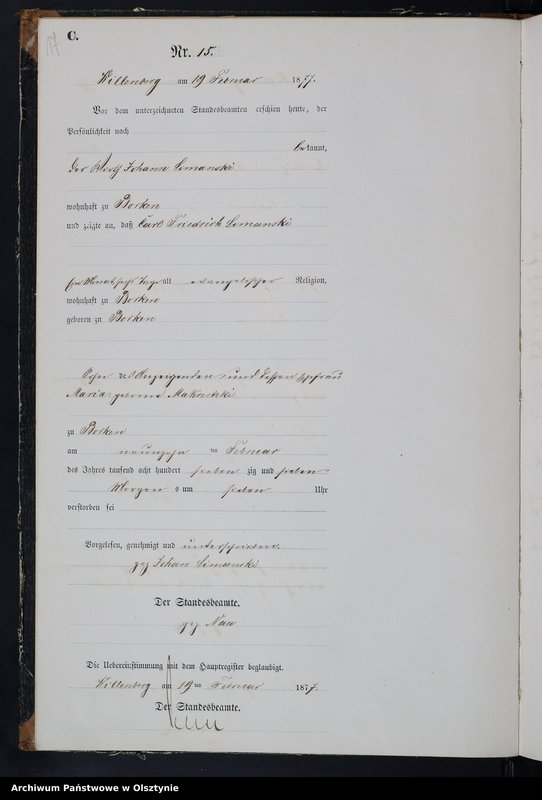 C.
17
Nr. 15.
Willenberg am 19 Februar 1877.
Vor dem unterzeichneten Standesbeamten erschien heute, der
Persönlichkeit nach
bekannt,
der Johann Simanski
wohnhaft zu Borken
und zeigte an, daß Carl Friedrich Simanski
sechs Tage alt evangelischer Religion,
wohnhaft zu Borken
geboren zu Borken
Sohn des Anzeigenden und dessen Ehefrau
Maria geborne
zu Borken
am neunzehn ten Februar
des Jahres tausend acht hundert sieben zig und sieben
Morgen s um sieben Uhr
verstorben sei
Vorgelesen, genehmigt und unterschrieben.
gez Johann Simanski
Der Standesbeamte.
gez Nau
Die Uebereinstimmung mit dem Hauptregister beglaubigt.
Willenberg am 19ten Februar 1877.
Der Standesbeamte.
Nau
Archiwum Państwowe w Olsztynie